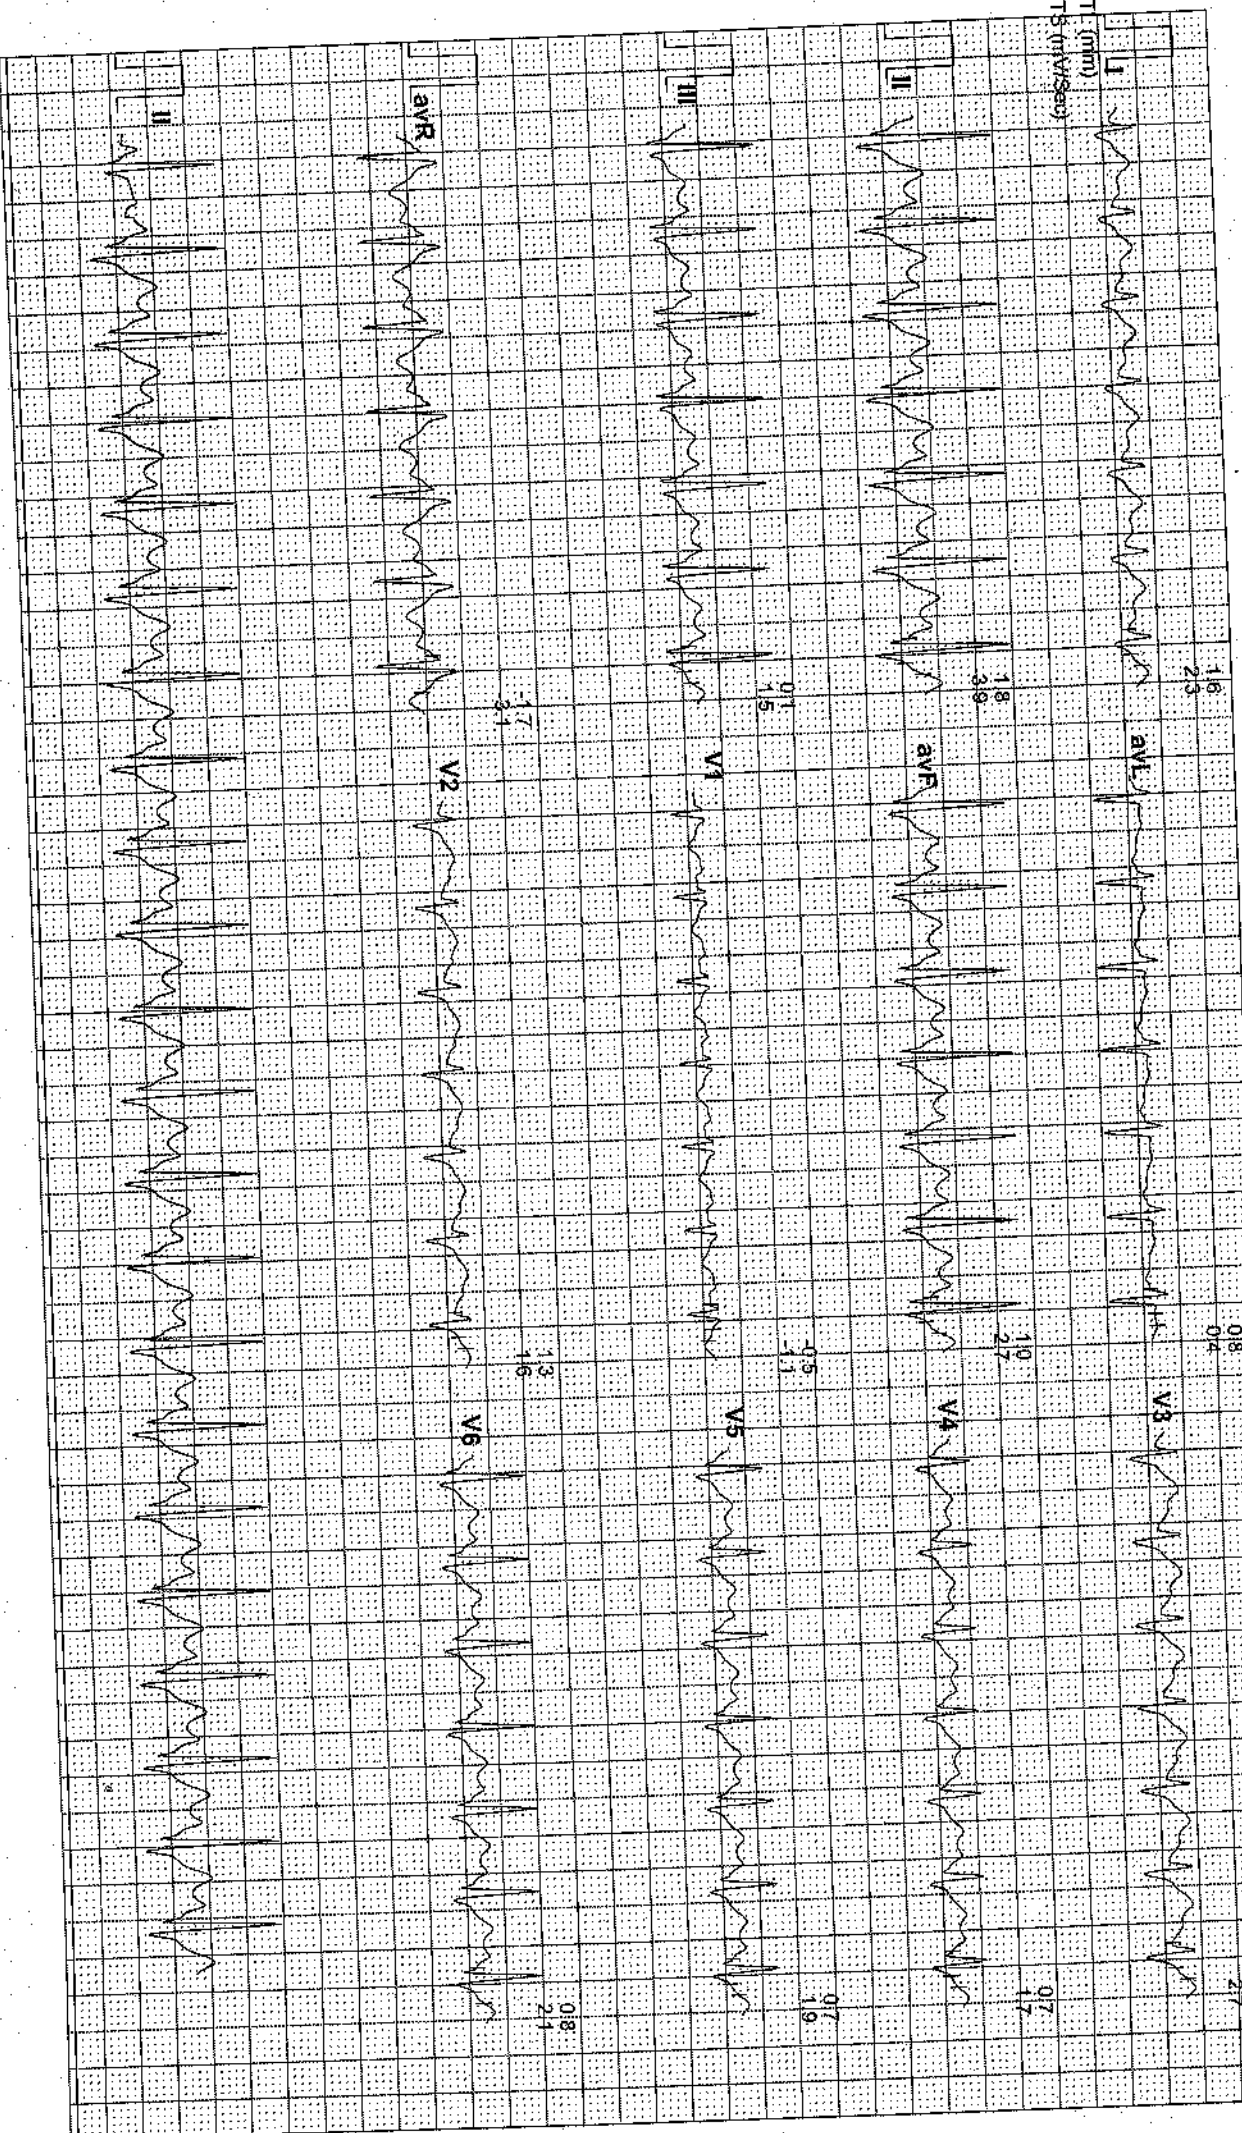 I
(mm)
(mV/Sec)
1.6
2.3
avL
0.8
0.4
V3
II
1.8
3.9
avF
1.0
2.7
V4
0.7
1.7
III
0.1
1.5
V1
-0.5
-1.1
V5
0.7
1.9
avR
-1.7
-3.1
V2
1.3
1.6
V6
0.8
2.1
II